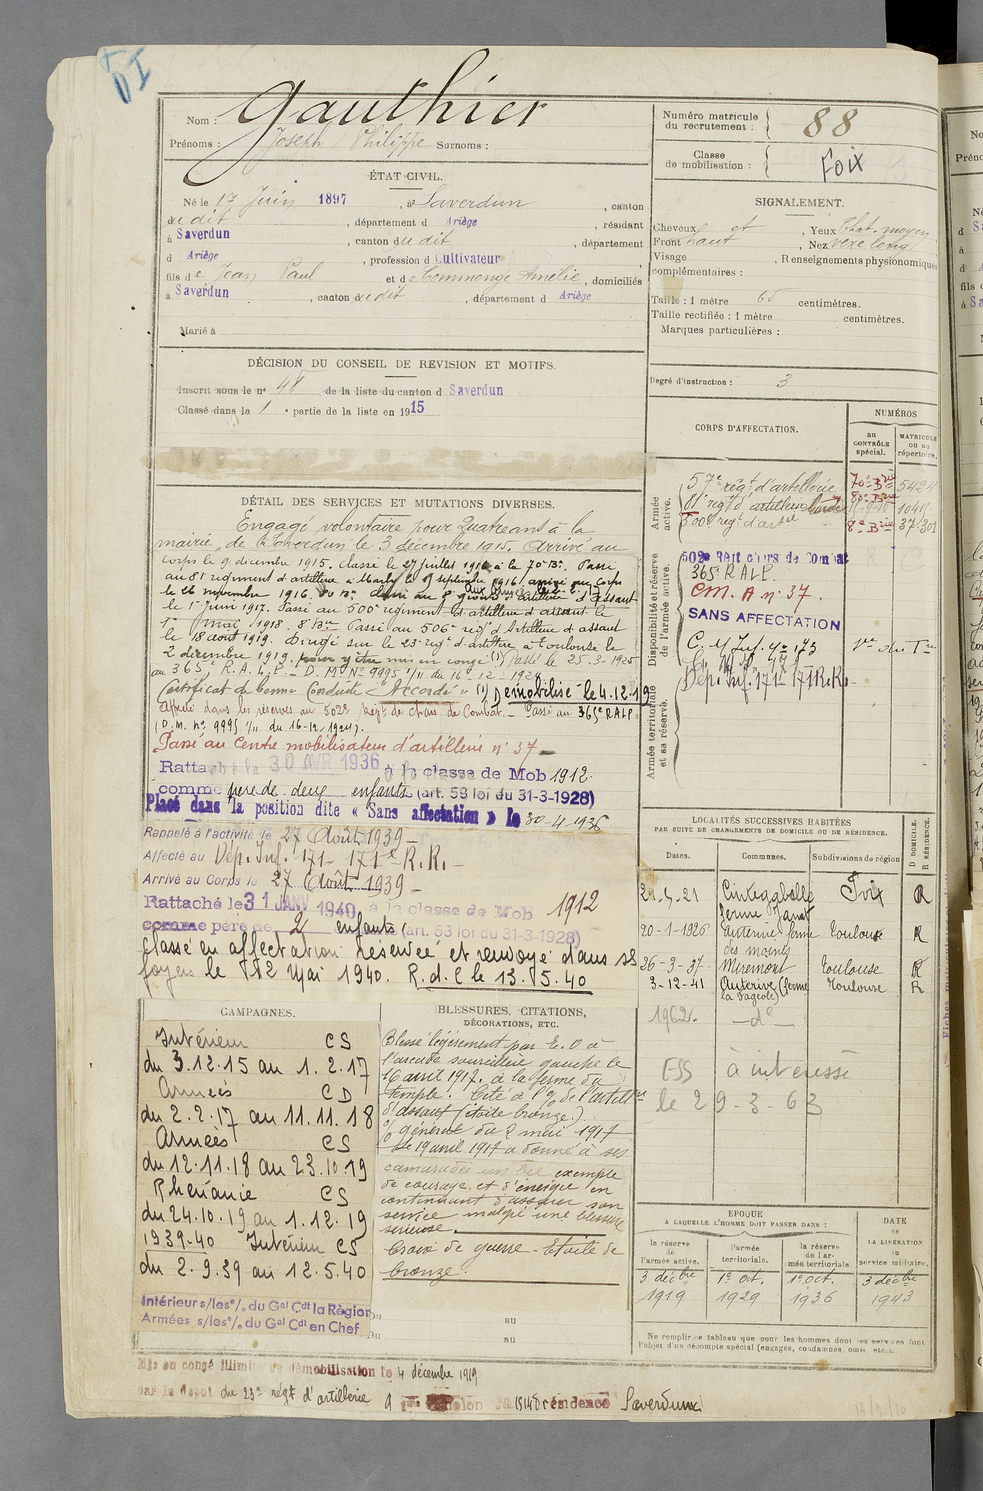 Nom : Gauthier
Prénoms : Joseph Philippe Surnoms :
Numéro matricule du recrutement : 88
Classe de mobilisation : Foix
ÉTAT CIVIL.
Né le 17 Juin 1897, à Saverdun, canton
dudit, département d Ariège, résidant
à Saverdun, canton dudit, département
d Ariège, profession d Cultivateur
fils de Jean Paul et de Commenge Amélie, domiciliés
à Saverdun, canton dudit, département d Ariège
Marié à
SIGNALEMENT.
Cheveux, Yeux Chat. moyen
Front haut, Nez vexe long
Visage, Renseignements physionomiques
complémentaires :
Taille : 1 mètre 65 centimètres.
Taille rectifiée : 1 mètre centimètres.
Marques particulières :
Degré d'instruction : 3
DÉCISION DU CONSEIL DE REVISION ET MOTIFS.
Inscrit sous le n° 48 de la liste du canton d Saverdun
Classé dans la 1e partie de la liste en 1915
CORPS D'AFFECTATION.
NUMÉROS
au CONTRÔLE spécial.
MATRICULE ou au répertoire.
Armée active.
57e régt d'artillerie 70e Brie 5424
81e régt d'artillerie lourde 80e Brie 1045
500e régt d'artie 8e Brie 37301
Disponibilité et réserve de l'armée active.
502e Regt chars de Combat
365e RALP.
CM. A n° 37.
SANS AFFECTATION
Armée territoriale et sa réserve.
Dép. Inf. 171- 171 R.R.-
DÉTAIL DES SERVICES ET MUTATIONS DIVERSES.
Engagé volontaire pour Quatre ans à la
mairie de Saverdun le 3 décembre 1915. Arrivé au
corps le 9 décembre 1915. Classé le 27 juillet 1916 à la 70e Bie. Passé
au 81 régiment d'artillerie à Marly le 9 septembre 1916 arrivé au Corps
le 26 novembre 1916. 80 Bie. d'artillerie d'assaut
le 1er Juin 1917. Passé au 500e régiment d'artillerie d'assaut le
1er mai 1918. 8e Bie Passé au 506e régt d'Artillerie d'assaut
le 18 août 1919. Dirigé sur le 23e régt d'artrie à Toulouse le
2 décembre 1919 pour y être mis en congé (1) Passé le 25-3-1925
au 365e R.A.L.P. - D.M. N° 9995 1/11 du 16-12-192
Certificat de bonne Conduite "Accordé" (1) Démobilisé le 4.12.19
Affecté dans les réserves au 502e Régt de chars de Combat. - Passé au 365e RALP
(D.M. n° 9995 1/11 du 16-12-1924).
Passé au Centre mobilisateur d'artillerie n° 37 -
Rattaché le 30 AVR 1936 à la classe de Mob 1912.
comme père de deux enfants (art. 58 loi du 31-3-1928)
Placé dans la position dite « Sans affectation » le 30-4-1936
Rappelé à l'activité le 27 Août 1939 -
Affecté au Dép. Inf. 171 - 171e R.R. -
Arrivé au Corps le 27 Août 1939 -
Rattaché le 31 JANV 1940 à la classe de Mob 1912
comme père de 2 enfants (art. 58 loi du 31-3-1928)
Classé en affectation réservée et renvoyé dans ses
foyers le 12 Mai 1940. R.d.C le 13.5.40
LOCALITÉS SUCCESSIVES HABITÉES
PAR SUITE DE CHANGEMENTS DE DOMICILE OU DE RÉSIDENCE.
Dates. Communes. Subdivisions de région D DOMICILE. R RÉSIDENCE.
24-4-21 Cintegabelle ferme Janot Foix R
20-1-1926 Auterive ferme des moines Toulouse R
26-3-37- Miremont Toulouse R
3-12-41 Auterive (ferme la Pageole) Toulouse R
1962. - d° -
ESS à intéressé
le 29-3-63
CAMPAGNES.
Intérieur CS
du 3.12.15 au 1.2.17
Armées CD
du 2.2.17 au 11.11.18
Armées CS
du 12.11.18 au 23.10.19
Rhénanie CS
du 24.10.19 au 1.12.19
1939-40 Intérieur CS
du 2.9.39 au 12.5.40
Intérieur s/les °/. du Gal Cdt la Région
Armées s/les °/. du Gal Cdt en Chef
BLESSURES, CITATIONS, DÉCORATIONS, ETC.
Blessé légèrement par E.O à
l'arcade sourcilière gauche le
16 avril 1917. à la ferme du
temple. Cité à l'% de l'artillrie
d'assaut (étoile bronze.)
% général du 2 mai 1917
Le 19 avril 1917 a donné à ses
camarades un bel exemple
de courage et d'énergie en
continuant d'assurer son
service malgré une blessure
sérieuse.
Croix de guerre - Etoile de
bronze.
au
au
EPOQUE
A LAQUELLE L'HOMME DOIT PASSER DANS :
la réserve de l'armée active. l'armée territoriale. la réserve de l'armée territoriale.
DATE de LA LIBÉRATION du service militaire.
3 décbre 1919 1er oct. 1929 1er oct. 1936 3 décbre 1943
Ne remplir ce tableau que pour les hommes dont les services font
l'objet d'un décompte spécial (engagés, condamnés, omis, etc.).
Mis en congé illimité de démobilisation le 4 décembre 1919
par le Dépôt du 23e régt d'artillerie 9 échelon résidence Saverdun